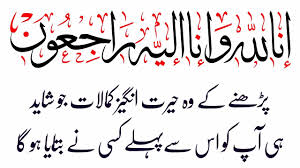 إِنَّا لِلّٰهِ وَإِنَّا إِلَيْهِ رَاجِعُونَ
پڑھنے کے وہ حیرت انگیز کمالات جو شاید
ہی آپ کو اس سے پہلے کسی نے بتایا ہوگا